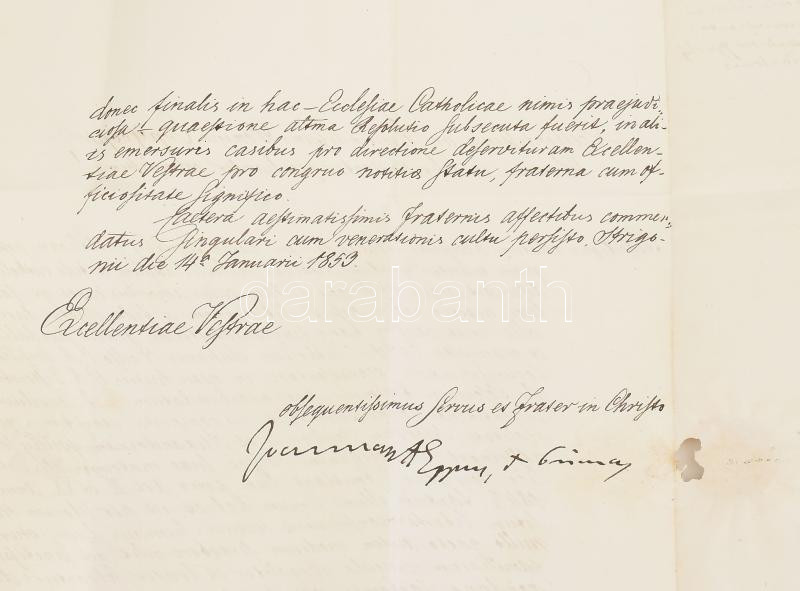 donec finalis in hac – Ecclesiae Catholicae nimis praejudi
ciosa – quaestione altma Resolutio subsecuta fuerit, in ali-
is emersuris casibus pro directione deservituram Excellen-
tiae Vestrae pro congruo notitiae statu, fraterna cum of-
ficiositate significo.
Caetera aestimatissimis fraternis affectibus commen-
datus singulari cum venerationis cultu persisto. Strigo-
nii die 14a Januarii 1853.
darabanth
Excellentiae Vestrae
obsequentissimus servus et frater in Christo
Joannes AEppus, + Primas